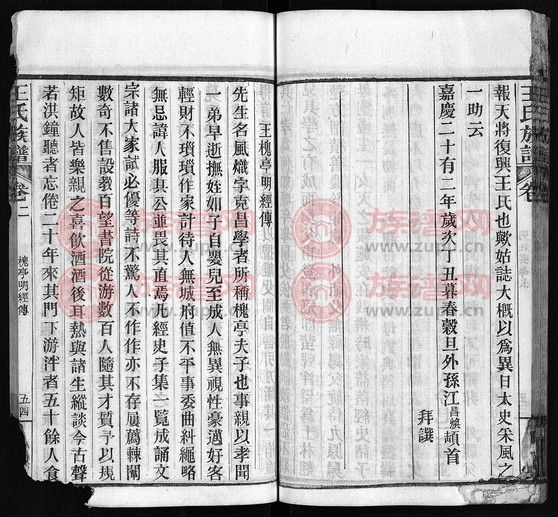 報天將復興王氏也歟姑誌大概以為異日太史采風之
一助云
嘉慶二十有二年歲次丁丑暮春穀旦外孫江昌煥頴首
拜譔
王氏族譜
卷
王槐亭明經傳
先生名風熾字克昌學者所稱槐亭夫子也事親以孝聞
一弟早逝撫姪如子自嬰兒至成人無異視性豪邁好客
輕財不瑣瑣作家計待人無城府值不平事委曲糾繩略
無忌諱人服其公並畏其直焉九經史子集一覽成誦文
宗諸大家試必優等詩不驚人不作作亦不存屢薦棘闈
數奇不售設教百望書院從游數百人隨其才質予以規
矩故人皆樂親之喜飲酒酒後耳熱與諸生縱談今古聲
若洪鐘聽者忘倦二十年來其門下游泮者五十餘人食
王氏族譜
卷二
槐亭明經傳
五四
族譜网
www.zupu.cn